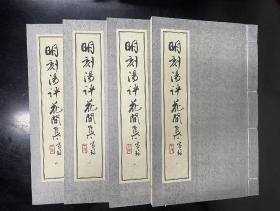 明刻湯評花間集
明刻湯評花間集
明刻湯評花間集
明刻湯評花間集